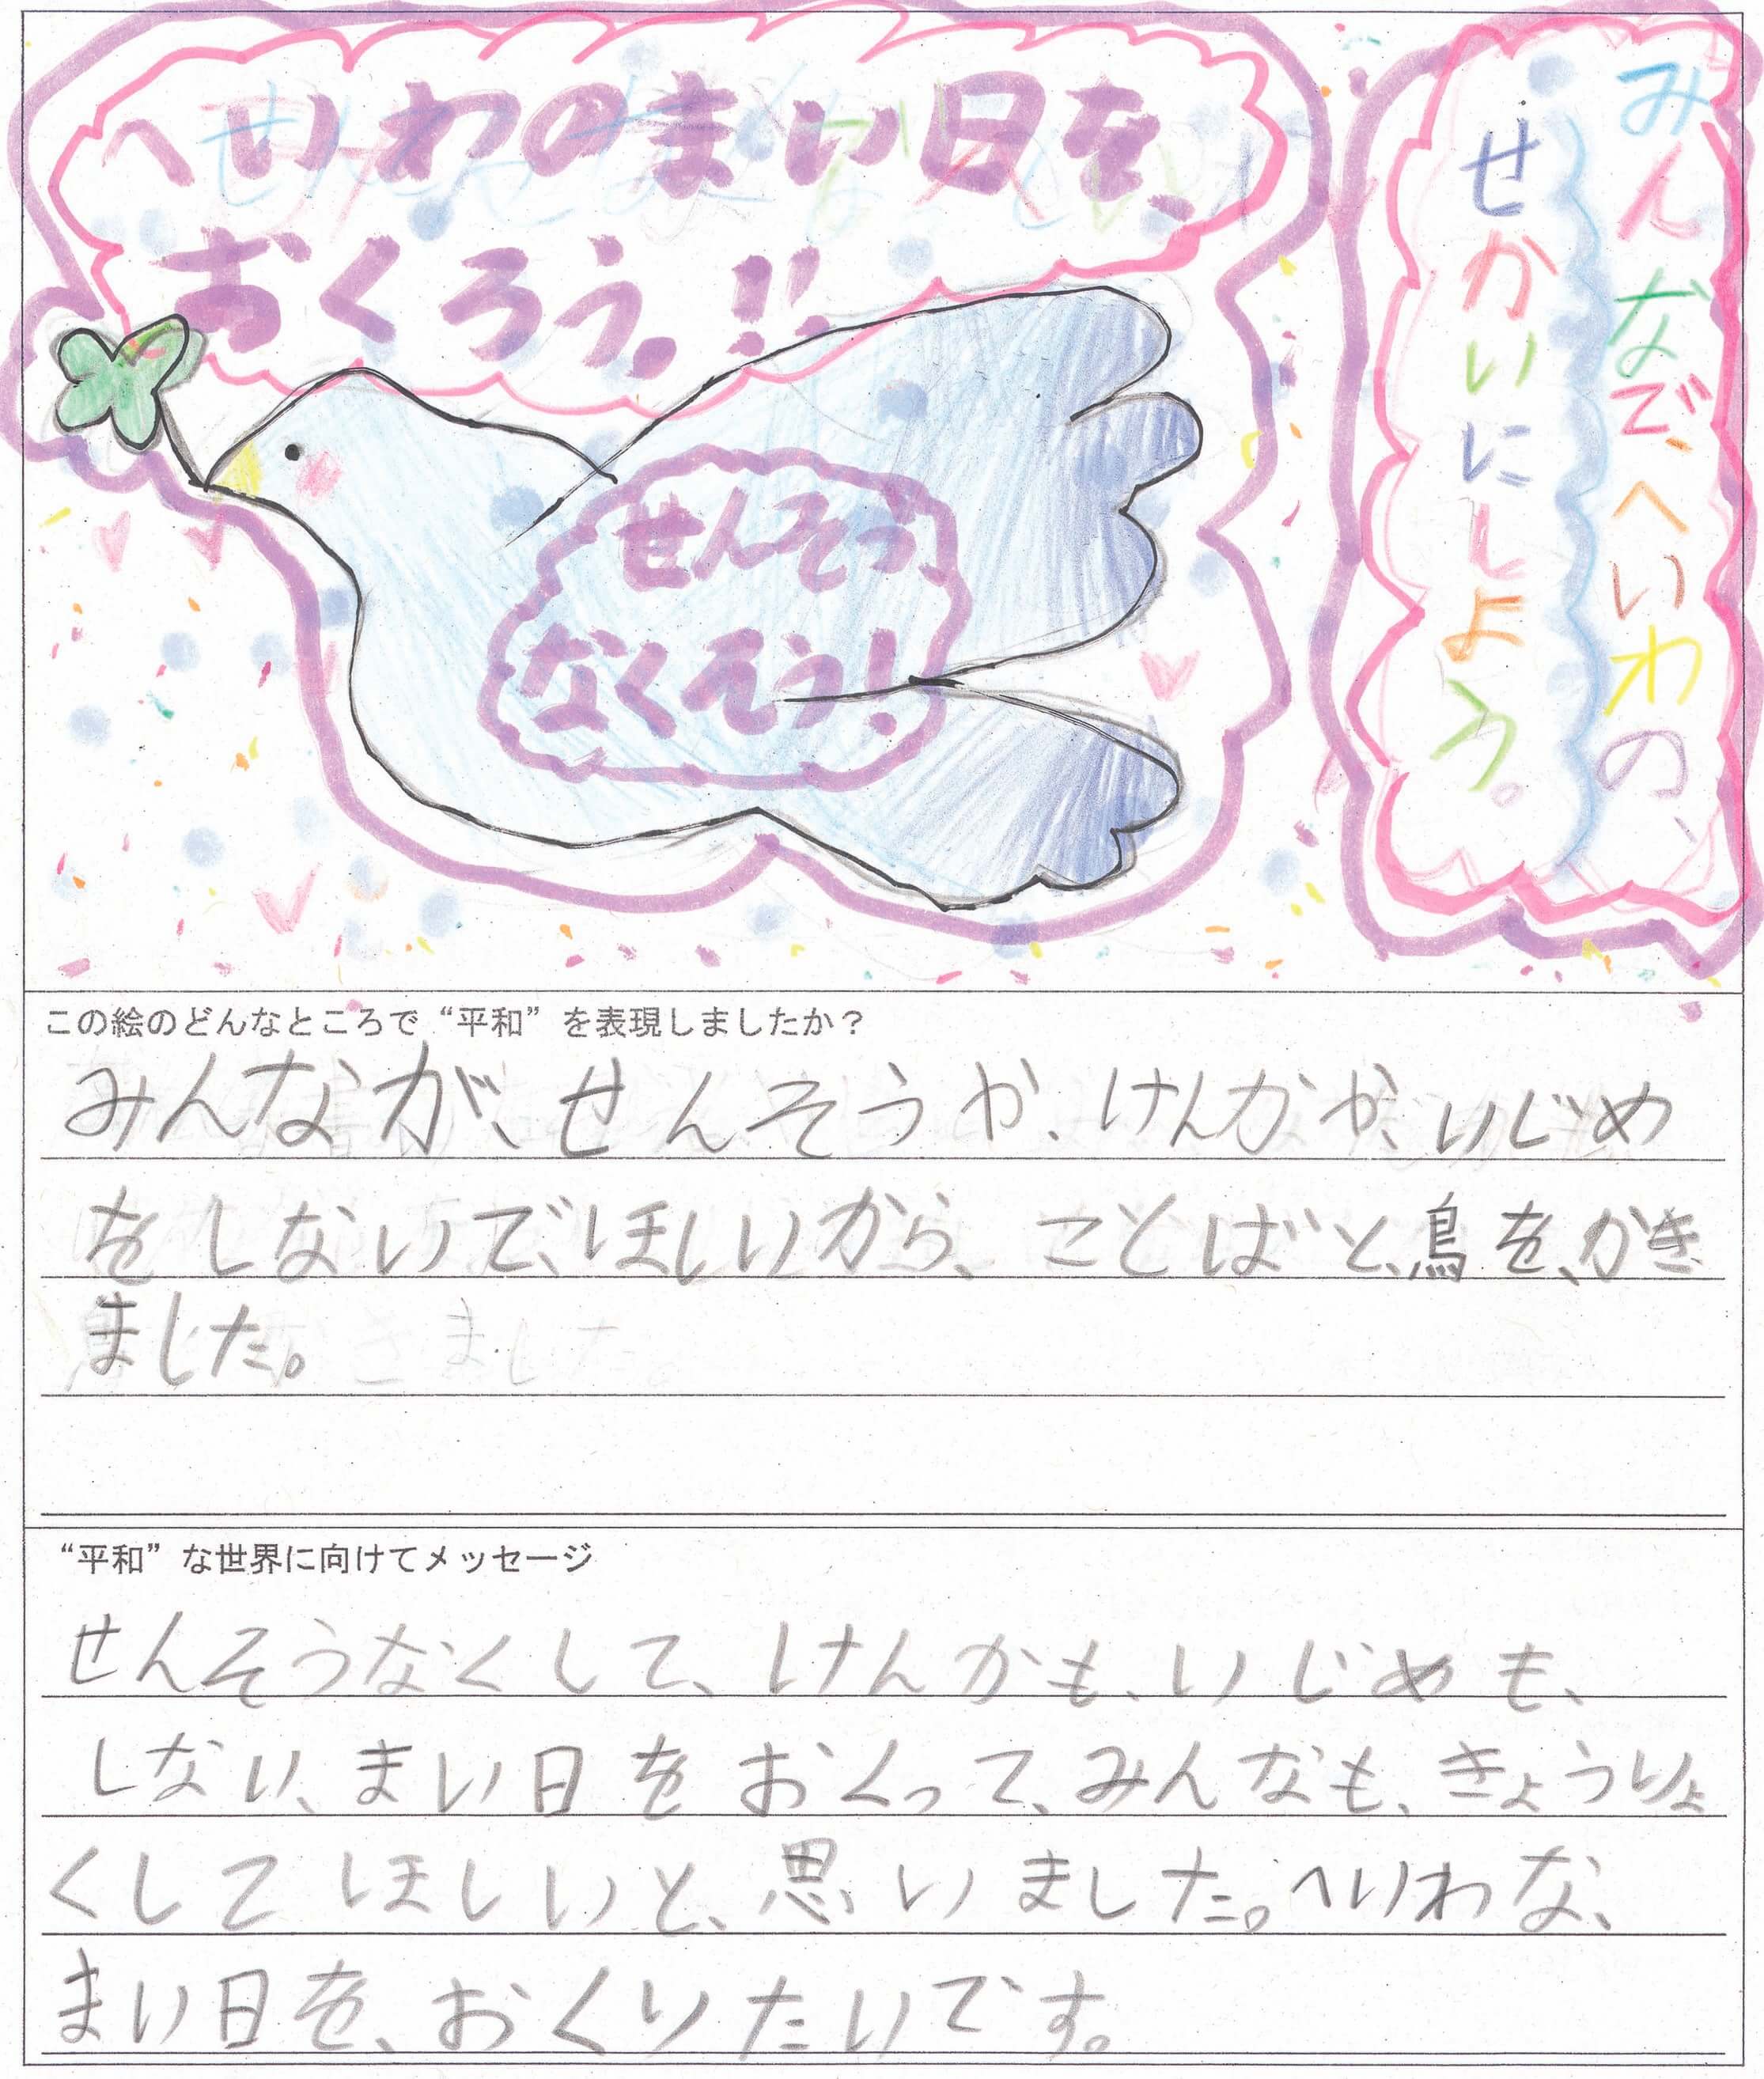 へいわのまい日を、
おくろう。!!
せんそう、
なくそう!
みんなで、へいわの、
せかいにしよう。
この絵のどんなところで“平和”を表現しましたか?
みんなが、せんそうか、けんかか、いじめ
をしないで、ほしいから、ことばと、鳥を、かき
ました。
“平和”な世界に向けてメッセージ
せんそうなくして、けんかも、いじめも、
しない、まい日をおくって、みんなも、きょうりょ
くしてほしいと、思いました。へいわな、
まい日を、おくりたいです。